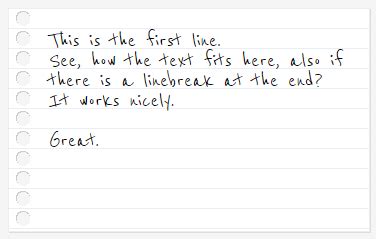 This is the first line.
See, how the text fits here, also if
there is a linebreak at the end?
It works nicely.

Great.